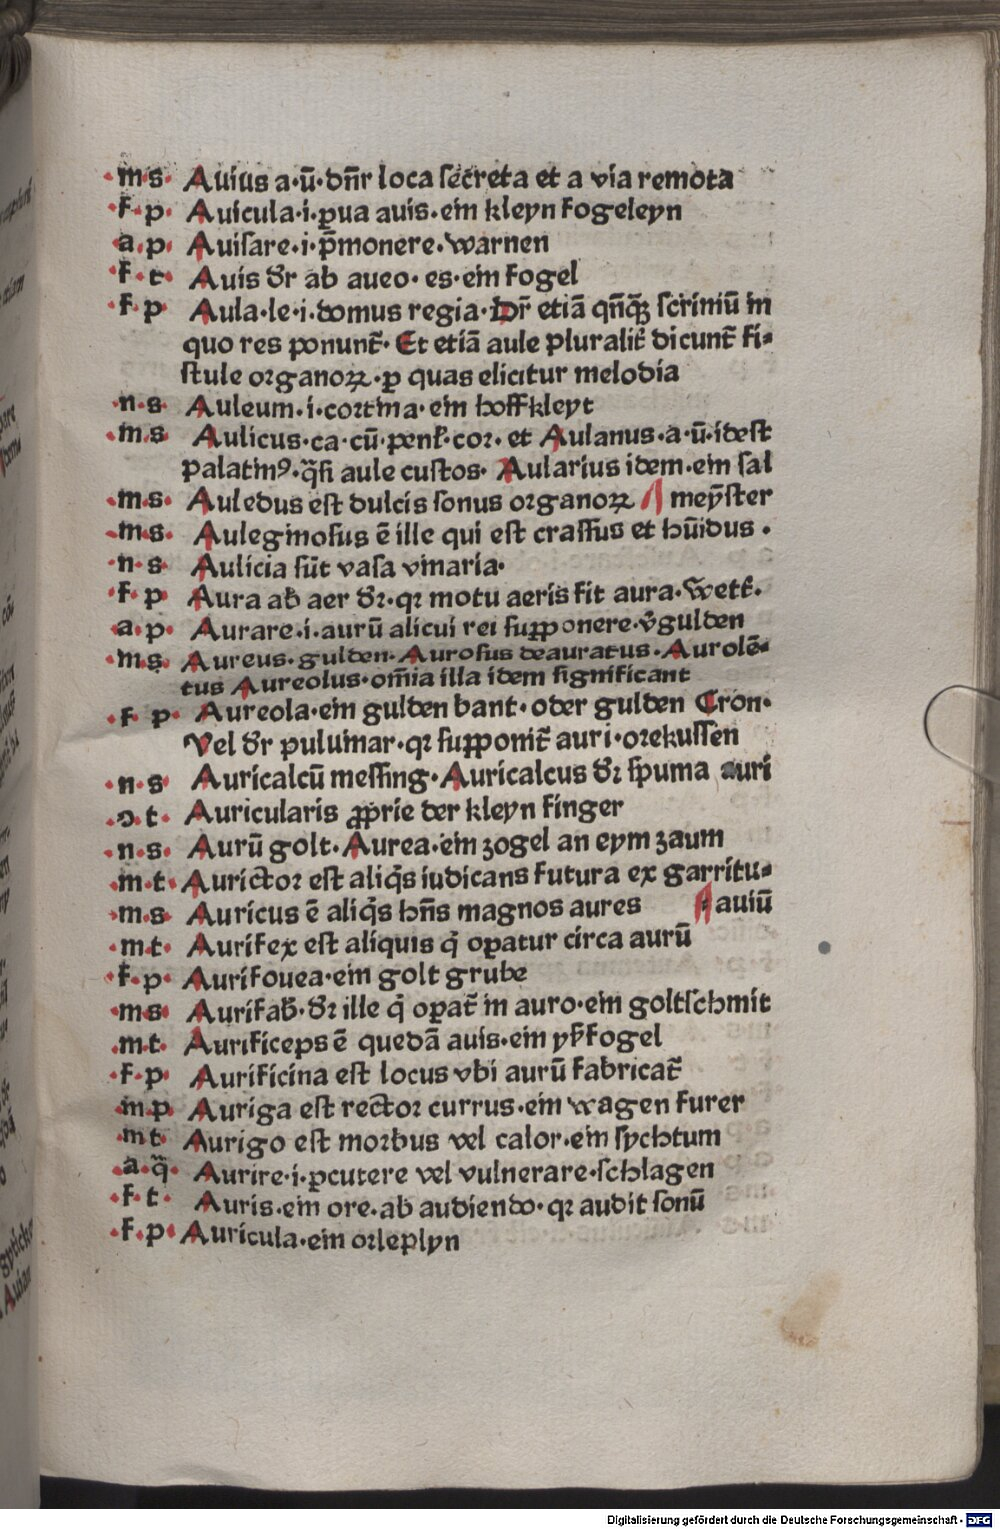 ·m·s· Auius a·ū·dn̄r loca secreta et a via remota
·f·p· Auicula·i·ꝑua auis·ein kleyn fogeleyn
·a·p· Auisare·i·p̄monere·warnen
·f·t· Auis dr̄ ab aueo·es·ein fogel
·f·p· Aula·le·i·domus regia·Dr̄ etiā qn̄qꝫ scriniū in
quo res ponunt̄·Et etiā aule pluralit̄ dicunt̄ fi-
stule organoꝝ·ꝑ quas elicitur melodia
·n·s· Auleum·i·cortina·ein hoffkleyt
·m·s· Aulicus·ca·cū·penl̄·cor·et Aulanus·a·ū·idest
palatinꝰ·q̄si aule custos·Aularius idem·ein sal
·m·s· Auledus est dulcis sonus organoꝝ meyster
·m·s· Auleginosus ē ille qui est crassus et hūidus·
·n·s· Aulicia sūt vasa vinaria·
·f·p· Aura ab aer dr̄·qꝛ motu aeris fit aura·wett̄·
·a·p· Aurare·i·aurū alicui rei suꝑponere·v̄gulden
·m·s· Aureus·gulden·Aurosus deauratus·Aurolē-
tus Aureolus·om̄ia illa idem significant
·f·p· Aureola·ein gulden bant·oder gulden Cron·
Vel dr̄ puluinar·qꝛ suꝑponit̄ auri·orekussen
·n·s· Auricalcū messing·Auricalcus dr̄ spuma auri
·ↄ·t· Auricularis ꝓprie der kleyn finger
·n·s· Aurū golt·Aurea·ein zogel an eym zaum
·m·t· Aurictor est aliq̄s iudicans futura ex garritu-
·m·s Auricus ē aliq̄s hn̄s magnos aures auiū
·m·t· Aurifex est aliquis q̄ oꝑatur circa aurū
·f·p· Aurifouea·ein golt grube
·m·s· Aurifab̄·dr̄ ille q̄ oꝑat̄ in auro·ein goltschmit
·m·t· Aurificeps ē quedā auis·ein yß fogel
·f·p· Aurificina est locus vbi aurū fabricat̄
·m·p· Auriga est rector currus·ein wagen furer
·m·t· Aurigo est morbus vel calor·ein sychtum
·a·q̄· Aurire·i·ꝑcutere vel vulnerare·schlagen
·f·t· Auris·ein ore·ab audiendo·qꝛ audit sonū
·f·p· Auricula·ein orleplyn
Digitalisierung gefördert durch die Deutsche Forschungsgemeinschaft - DFG